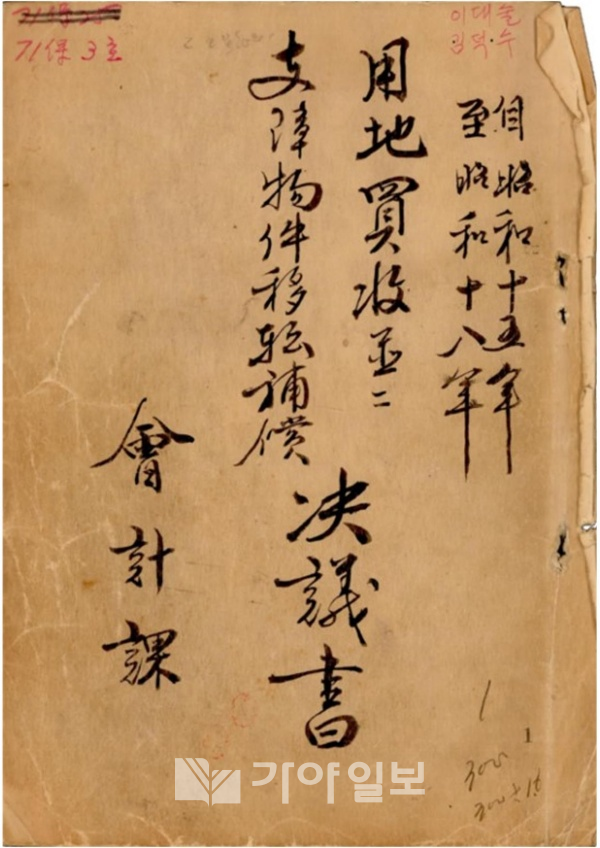 71保 3호
이대술
김덕수
自昭和十五年
至昭和十八年
用地買收並ニ
支障物件移転補償
決議書
會計課
1
1
가야일보